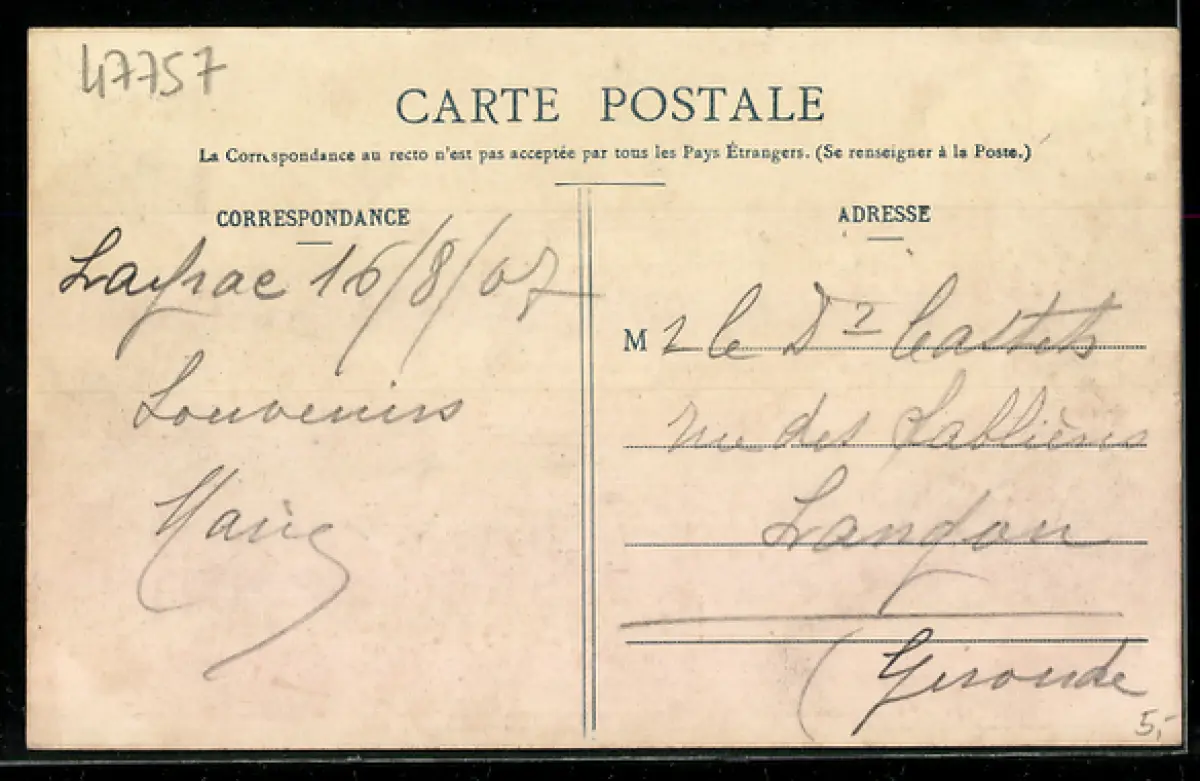 47757
CARTE POSTALE
La Correspondance au recto n'est pas acceptée par tous les Pays Étrangers. (Se renseigner à la Poste.)
CORRESPONDANCE
Layrac 16/8/07
Souvenirs
ADRESSE
M r le Dr Castets
rue des Sablières
Langon
(Gironde
5,-